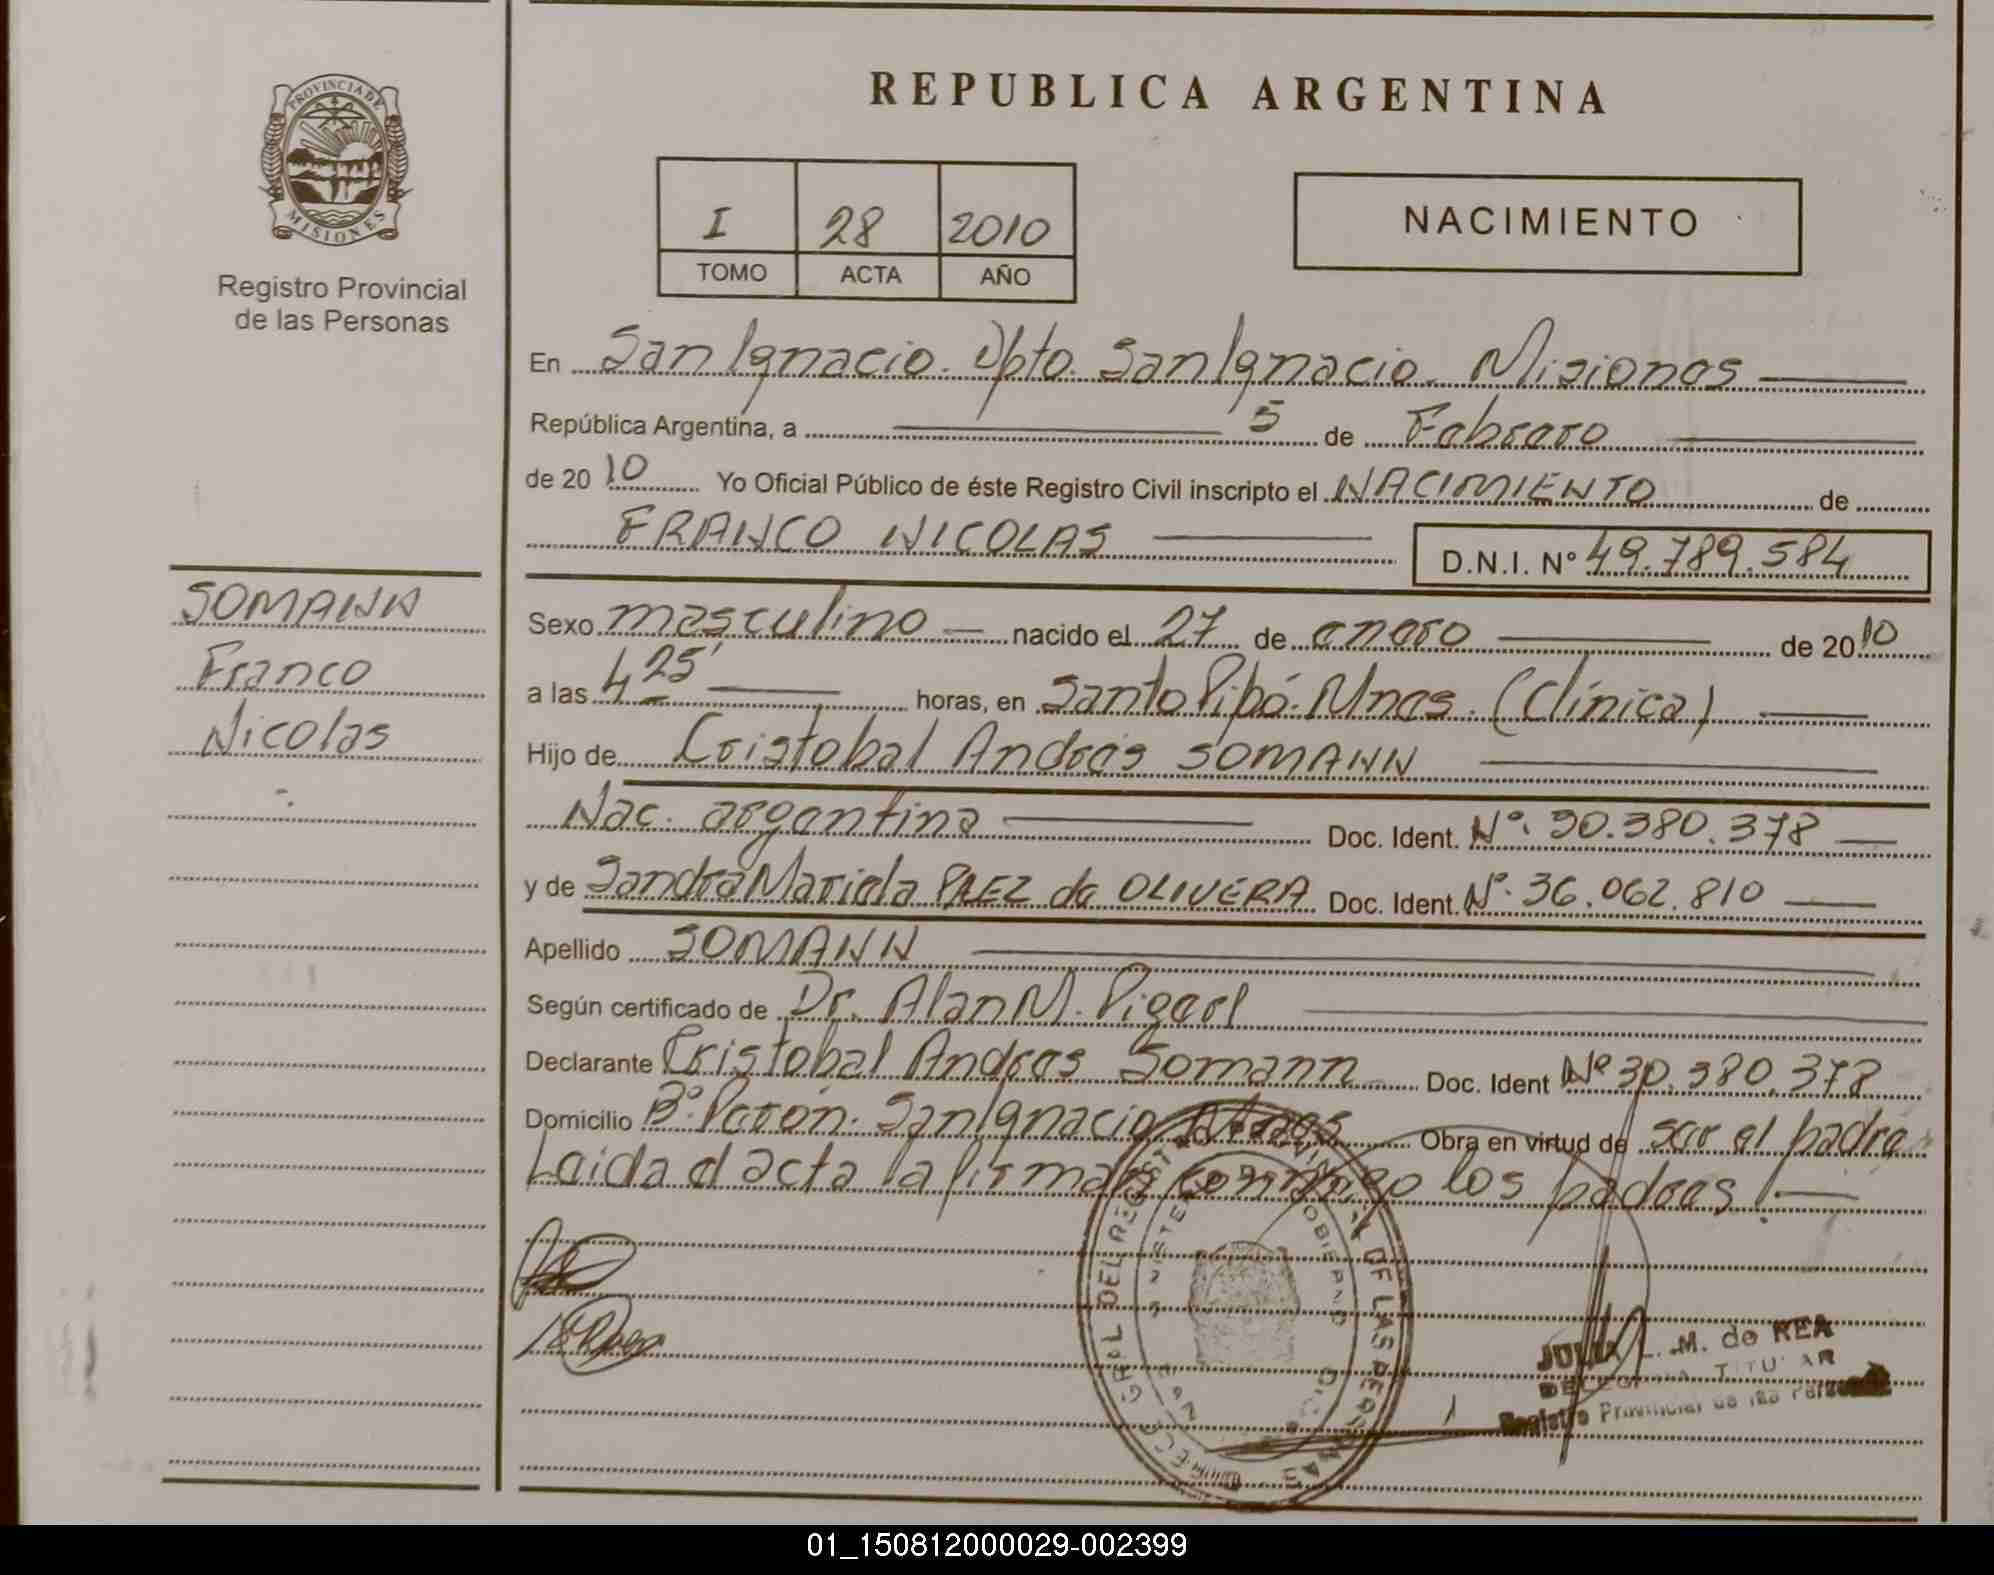 PROVINCIA DE
MISIONES
Registro Provincial
de las Personas
SOMANN
Franco
Nicolas
REPUBLICA ARGENTINA
I 28 2010
TOMO ACTA AÑO
NACIMIENTO
En San Ignacio. Dpto. San Ignacio. Misiones
República Argentina, a 5 de Febrero
de 2010 Yo Oficial Público de éste Registro Civil inscripto el NACIMIENTO de
FRANCO NICOLAS D.N.I. Nº 49.789.584
Sexo masculino nacido el 27 de enero de 2010
a las 4 25' horas, en Santo Pipó. Mnes. (Clínica)
Hijo de Cristobal Andrés SOMANN
Nac. argentina Doc. Ident. Nº. 30.380.378
y de Sandra Mariela PAEZ de OLIVERA Doc. Ident. Nº. 36.062.810
Apellido SOMANN
Según certificado de Dr. Alan M.
Declarante Cristobal Andres Somann Doc. Ident Nº 30.380.378
Domicilio Bº. Perón. San Ignacio Mnes Obra en virtud de ser el padre
Leida el acta la firman conmigo los padres!
JULIA L. M. de REA
DELEGADA TITULAR
Registro Provincial de las Personas
01_150812000029-002399